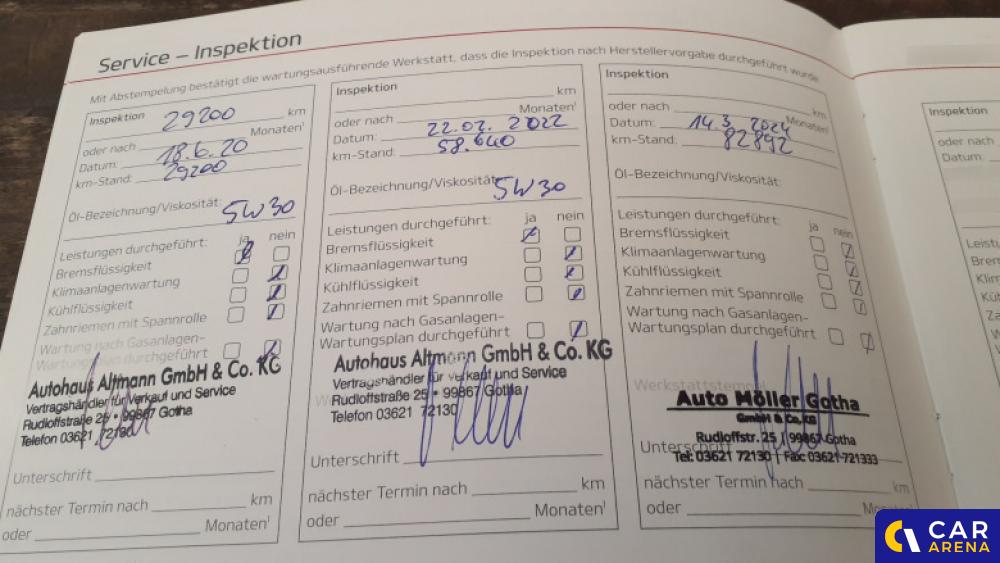 Service – Inspektion
Mit Abstempelung bestätigt die wartungsausführende Werkstatt, dass die Inspektion nach Herstellervorgabe durchgeführt wurde
Inspektion 29200 km
oder nach Monaten¹
Datum: 18.6.20
km-Stand: 29200
Öl-Bezeichnung/Viskosität: 5W30
Leistungen durchgeführt: ja nein
Bremsflüssigkeit
Klimaanlagenwartung
Kühlflüssigkeit
Zahnriemen mit Spannrolle
Wartung nach Gasanlagen-
Wartungsplan durchgeführt
Autohaus Altmann GmbH & Co. KG
Vertragshändler für Verkauf und Service
Rudloffstraße 25 • 99867 Gotha
Telefon 03621 72130
Unterschrift
nächster Termin nach km
oder Monaten¹
Inspektion km
oder nach Monaten¹
Datum: 22.02. 2022
km-Stand: 58.640
Öl-Bezeichnung/Viskosität: 5W30
Leistungen durchgeführt: ja nein
Bremsflüssigkeit
Klimaanlagenwartung
Kühlflüssigkeit
Zahnriemen mit Spannrolle
Wartung nach Gasanlagen-
Wartungsplan durchgeführt
Autohaus Altmann GmbH & Co. KG
Vertragshändler für Verkauf und Service
Rudloffstraße 25 • 99867 Gotha
Telefon 03621 72130
Unterschrift
nächster Termin nach km
oder Monaten¹
Inspektion
oder nach km
Datum: 14.3. 2024 Monaten¹
km-Stand: 82892
Öl-Bezeichnung/Viskosität:
Leistungen durchgeführt: ja nein
Bremsflüssigkeit
Klimaanlagenwartung
Kühlflüssigkeit
Zahnriemen mit Spannrolle
Wartung nach Gasanlagen-
Wartungsplan durchgeführt
Werkstattstempel
Auto Möller Gotha
GmbH & Co. KG
Rudloffstr. 25 | 99867 Gotha
Unterschrift
Tel: 03621 72130 | Fax: 03621-721333
nächster Termin nach km
oder
Inspektion
oder nach
Datum:
CAR
ARENA